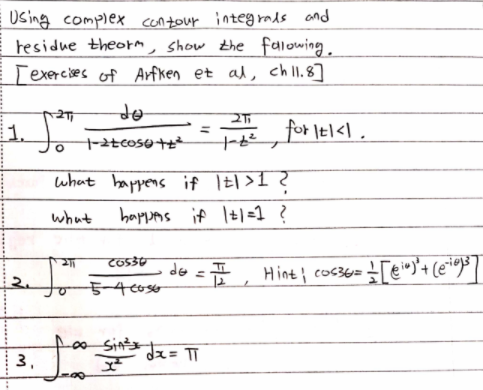 Using complex contour integrals and
residue theorm, show the fallowing.
[exercises of Arfken et al, ch 11.8]
1. ∫₀^{2π} dθ / (1-2tcosθ+t²) = 2π / (1-t²), for |t|<1.
what happens if |t|>1 ?
what happens if |t|=1 ?
2. ∫₀^{2π} cos3θ / (5-4cosθ) dθ = π/12, Hint; cos3θ=½[(e^{iθ})³+(e^{-iθ})³]
3. ∫_{-∞}^{∞} sin²x / x² dx = π